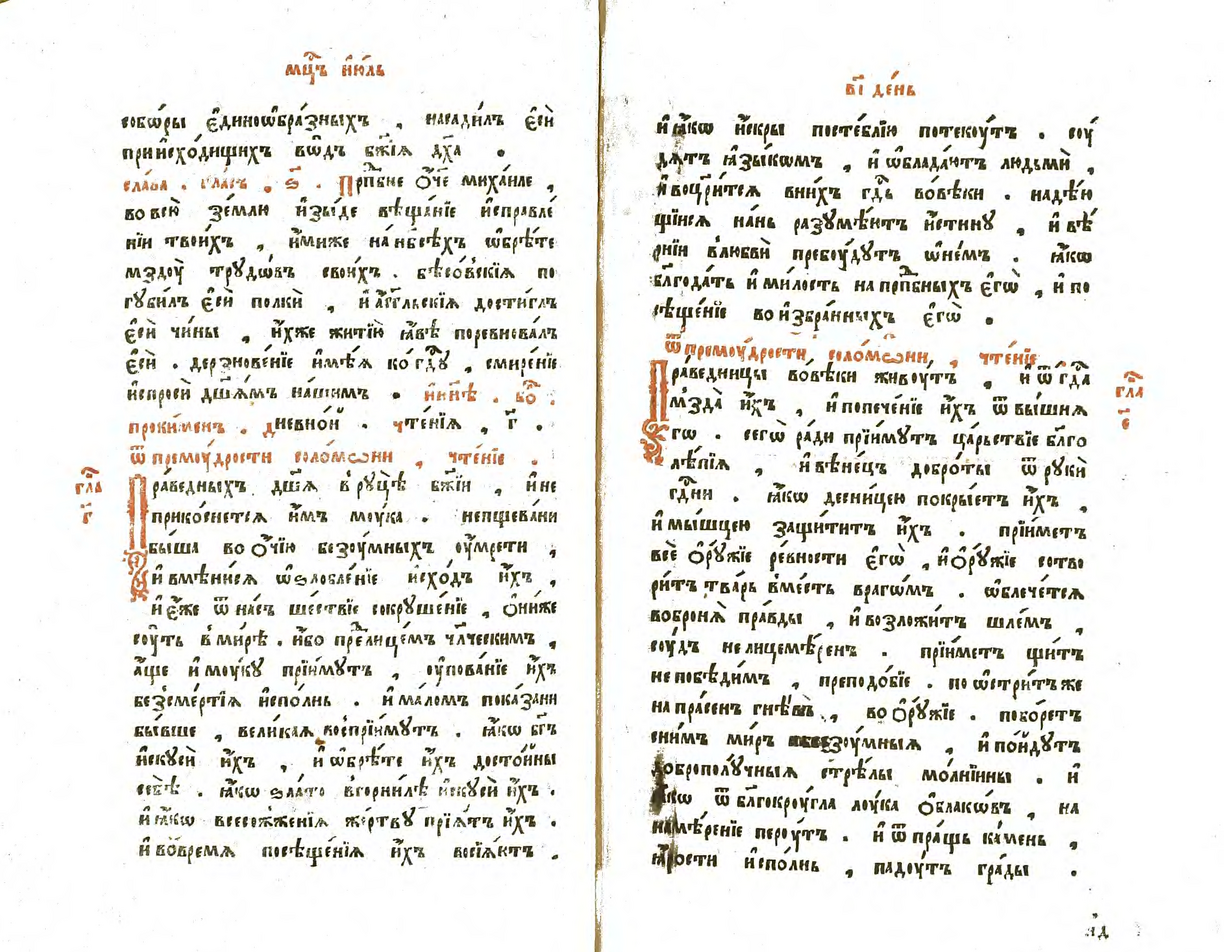 мц҇ъ і҆ю́ль
собѡ́ры є҆динѡѡбра́зныхъ , насади́лъ є҆сѝ
приисхо́дищихъ во́дъ бж҃їѧ дх҃а .
сла́ва . гла́съ , ѕ҃ . Прпⷣбне ѻ҆́ч҃е миха́иле ,
во всю̀ зе́млю и҆зы́де вѣща́нїе и҆справле́
нїи твои́хъ , и҆́миже на нб҃сѣ́хъ ѡ҆брѣ́те
мздоу̀ трꙋдѡ́въ свои́хъ . бѣсо́вскїѧ по
гꙋби́лъ є҆сѝ полкѝ , и҆ а҆́гг҃льскїѧ дости́глъ
є҆сѝ чи́ны , и҆́хже житїю̀ ꙗ҆́вѣ поревнова́лъ
є҆сѝ . дерзнове́нїе и҆мѣ́ѧ ко гдⷭ҇ꙋ , смире́нїе
и҆спросѝ дш҃а́мъ на́шимъ . ны́нѣ . бо҃ :
проки́менъ . дневно́й . чте́нїѧ , г҃ .
ѿ премоу́дрости соломѡ́ни , чте́нїе .
гла҇
г҃
Пра́ведныхъ дш҃ѧ̀ в рꙋцѣ̀ бж҃їи , и҆ не
прико́снетсѧ и҆́мъ моу́ка . непщева́ни
бы́ша во ѻ҆чїю̀ безоу́мныхъ оу҆мре́ти ,
и҆ вмѣни́сѧ ѡ҆ѕлобле́нїе и҆схо́дъ и҆́хъ ,
и҆ є҆́же ѿ на́съ ше́ствїе сокрꙋше́нїе , ѻ҆ни́же
соу́ть в ми́рѣ . и҆́бо пред̾ лице́мъ чл҃ческимъ ,
а҆́ще и҆ моу́кꙋ прїи́мꙋтъ , оу҆пова́нїе и҆́хъ
безсме́ртїѧ и҆спо́лнь . и҆ ма́ломъ пока́зани
бы́вше , вели́каѧ воспрїи́мꙋтъ . ꙗ҆́кѡ бг҃ъ
и҆скꙋсѝ и҆́хъ , и҆ ѡ҆брѣ́те и҆́хъ досто́йны
себѣ̀ . ꙗ҆́кѡ ѕла́то в горни́лѣ и҆скꙋсѝ и҆́хъ .
и҆ ꙗ҆́кѡ всесожже́нїѧ же́ртвꙋ прїѧ́тъ и҆́хъ .
и҆ во вре́мѧ посѣще́нїѧ и҆́хъ восїѧ́ютъ .
в҃і де́нь
и҆ ꙗ҆́кѡ и҆́скры постеблїю̀ потекоу́тъ . соу́
дѧтъ ꙗ҆зы́кѡмъ , и҆ ѡ҆блада́ютъ людьмѝ ,
и҆ воцр҃и́тсѧ в ни́хъ гдⷭ҇ь во вѣ́ки . надѣ́ю
щїисѧ на́нь разꙋмѣ́ютъ и҆́стинꙋ , и҆ вѣ́
рнїи в любвѝ пребоу́дꙋтъ ѡ҆ не́мъ . ꙗ҆́кѡ
бл҃года́ть и҆ ми́лость на прпⷣбныхъ є҆гѡ̀ , и҆ по
сѣще́нїе во и҆збра́нныхъ є҆гѡ̀ .
ѿ премоу́дрости соломѡ́ни , чте́нїе
гла҇
є҃
Пра́ведницы во вѣ́ки живоу́тъ , и҆ ѿ гдⷭ҇а
мздà и҆́хъ , и҆ попече́нїе и҆́хъ ѿ вы́шнѧ
гѡ . сегѡ̀ ра́ди прїи́мꙋтъ ца́рьствїе бл҃го
лѣ́пїѧ , и҆ вѣне́цъ добро́ты ѿ рꙋкѝ
гдⷭ҇ни . ꙗ҆́кѡ десни́цею покры́етъ и҆́хъ ,
и҆ мы́шцею защи́титъ и҆́хъ . прїи́метъ
всѐ ѻ҆рꙋ́жїе ре́вности є҆гѡ̀ , и҆ ѻ҆рꙋ́жїе сотво
ри́тъ тва́рь в ме́сть врагѡ́мъ . ѡ҆блече́тсѧ
во бронѧ̀ пра́вды , и҆ возложи́тъ шле́мъ ,
соу́дъ нелицемѣ́ренъ . прїи́метъ щи́тъ
непобѣди́мъ , преподо́бїе . поѡстри́тъ же
напра́сенъ гнѣ́въ , во ѻ҆рꙋ́жїе . побо́ретъ
с ни́мъ ми́ръ безоу́мныѧ , и҆ по́йдꙋтъ
доброполꙋ́чныѧ стрѣ́лы мо́лнїины . и҆
ꙗ҆́кѡ ѿ бл҃гокроу́гла лоу́ка ѻ҆́блакѡвъ , на
намѣ́ренїе пероу́тъ . и҆ ѿ пра́щь ка́мень ,
ꙗ҆́рости и҆спо́лнь , падоу́тъ гра́ды .